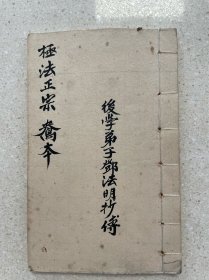 後学弟子鄧法明抄傳
極法正宗 鵞本